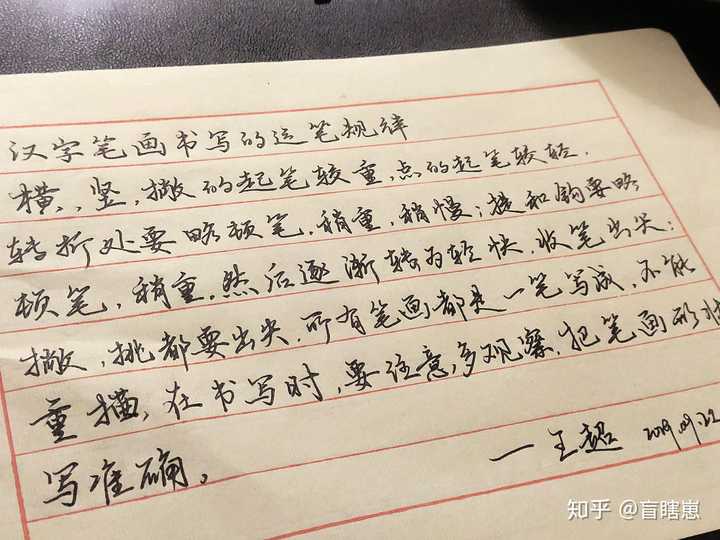 汉字笔画书写的运笔规律
横、竖、撇的起笔较重,点的起笔较轻.
转折处要略顿笔,稍重,稍慢;提和钩要略
顿笔,稍重,然后逐渐转为轻快,收笔出尖;
撇,挑都要出尖.所有笔画都是一笔写成,不能
重描,在书写时,要注意多观察,把笔画形状
写准确。
一王超 2019.09.22
知乎 @盲瞎崽